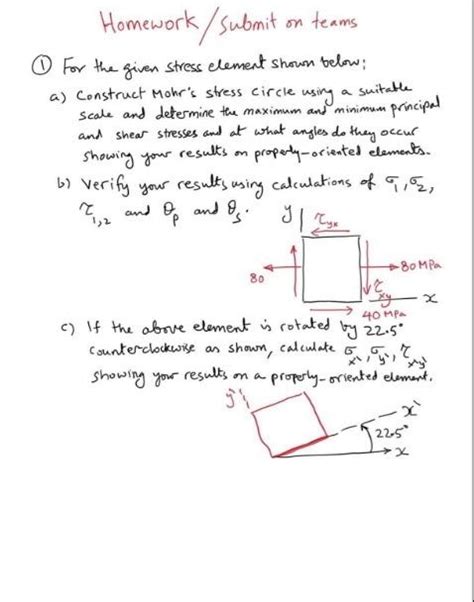 Homework/Submit on teams
① For the given stress element shown below:
a) Construct Mohr's stress circle using a suitable
scale and determine the maximum and minimum principal
and shear stresses and at what angles do they occur
showing your results on properly-oriented elements.
b) Verify your results using calculations of σ₁, σ₂,
τ₁,₂ and θp and θs.
y
τyx
80
80 MPa
τxy
x
40 MPa
c) If the above element is rotated by 22.5°
counterclockwise as shown, calculate σx', σy', τx'y'
showing your results on a properly-oriented element.
y'
x'
22.5°
x